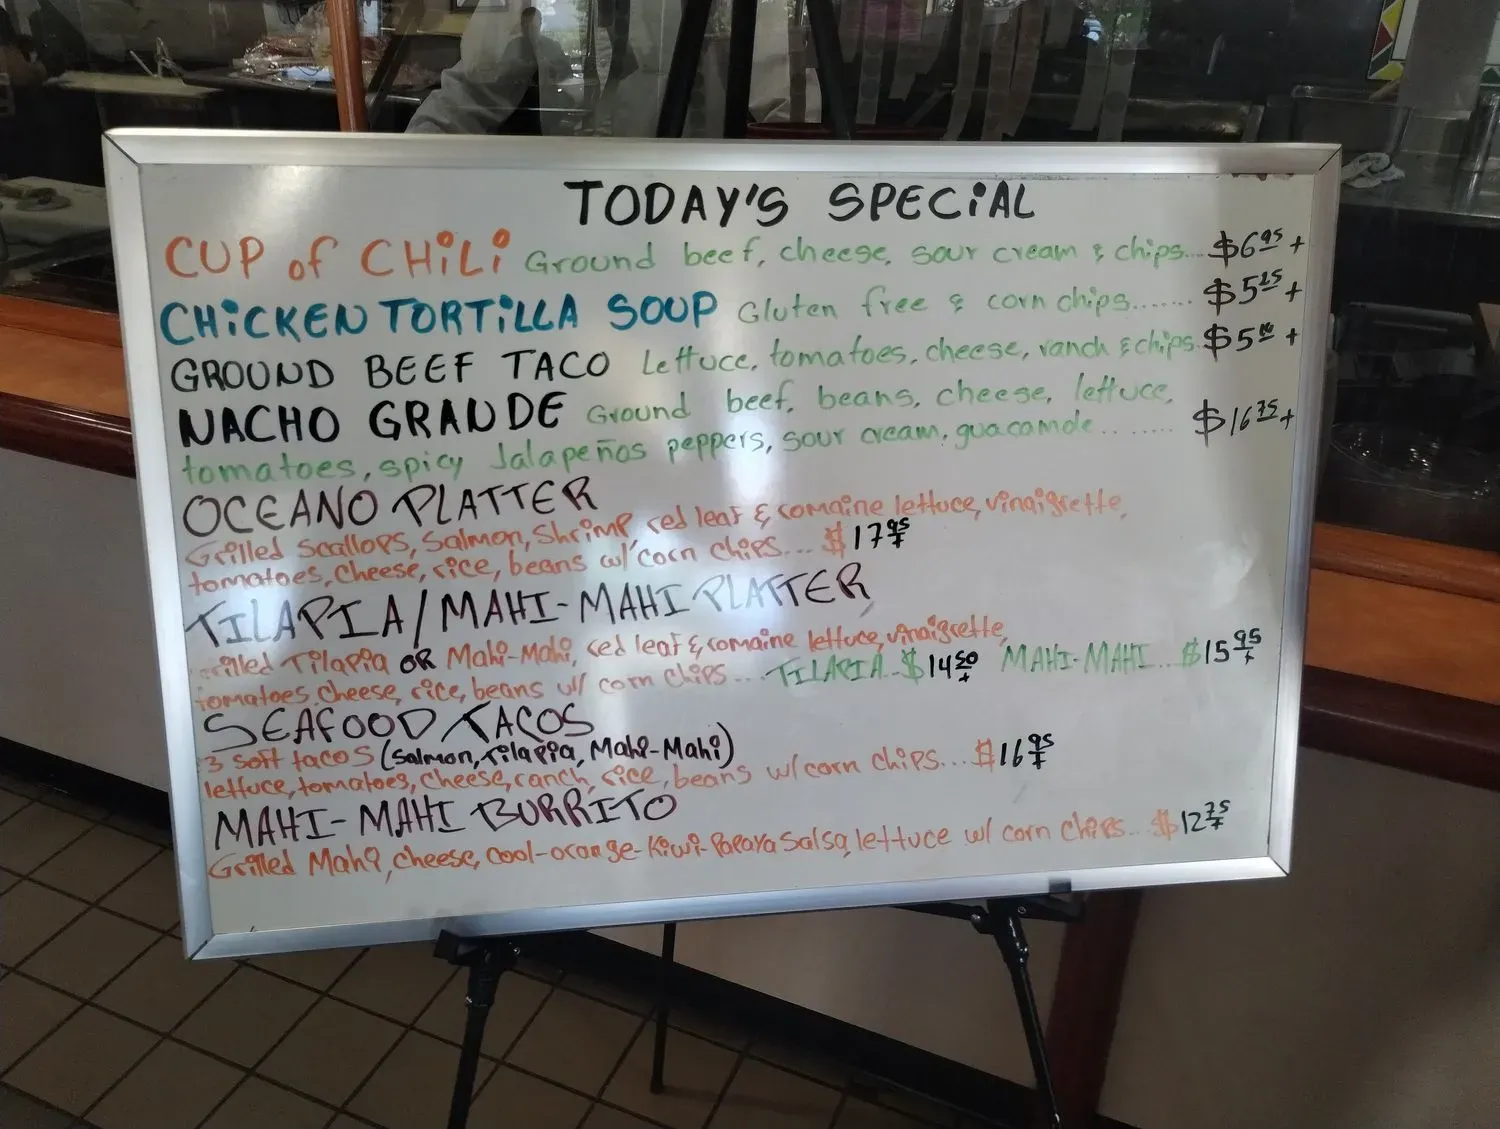 TODAY'S SPECiAL
CUP of CHiLi Ground beef, cheese, sour cream & chips... $6.95 +
CHiCKEN TORTiLLA SOUP Gluten free & corn chips....... $5.25 +
GROUND BEEF TACO Lettuce, tomatoes, cheese, ranch & chips. $5 +
NACHO GRANDE Ground beef, beans, cheese, lettuce,
tomatoes, spicy Jalapeños peppers, sour cream, guacamole......... $16.75 +
OCEANO PLATTER
Grilled Scallops, Salmon, Shrimp, red leaf & romaine lettuce, vinaigrette,
tomatoes, cheese, rice, beans w/ corn chips... $17.95 +
TILAPIA/MAHI-MAHI PLATTER
Grilled Tilapia OR Mahi-Mahi, red leaf & romaine lettuce, vinaigrette,
tomatoes, cheese, rice, beans w/ corn chips.... TILAPIA.. $14.50 + MAHI-MAHI... $15.95 +
SEAFOOD TACOS
3 soft tacos (Salmon, Tilapia, Mahi-Mahi)
lettuce, tomatoes, cheese, ranch, rice, beans w/ corn chips... $16.95 +
MAHI-MAHI BURRITO
Grilled Mahi, cheese, cool-orange-kiwi-Papaya Salsa, lettuce w/ corn chips... $12.75 +